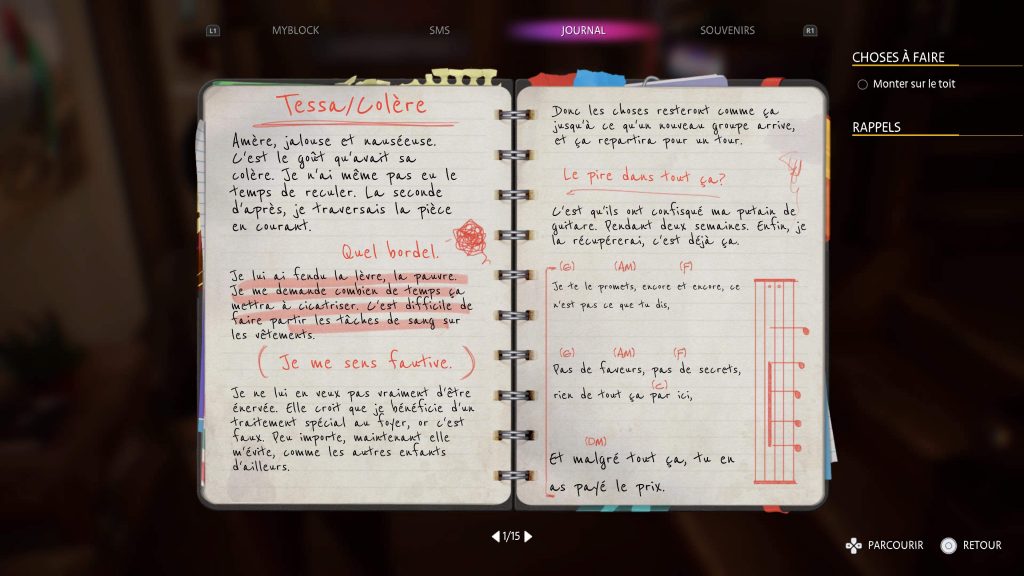 L1
MYBLOCK
SMS
JOURNAL
SOUVENIRS
R1
CHOSES À FAIRE
Monter sur le toit
RAPPELS
Tessa/Colère
Amère, jalouse et nauséeuse.
C'est le goût qu'avait sa
colère. Je n'ai même pas eu le
temps de reculer. La seconde
d'après, je traversais la pièce
en courant.
Quel bordel.
Je lui ai fendu la lèvre, la pauvre.
Je me demande combien de temps ça
mettra à cicatriser. C'est difficile de
faire partir les tâches de sang sur
les vêtements.
(Je me sens fautive.)
Je ne lui en veux pas vraiment d'être
énervée. Elle croit que je bénéficie d'un
traitement spécial au foyer, or c'est
faux. Peu importe, maintenant elle
m'évite, comme les autres enfants
d'ailleurs.
Donc les choses resteront comme ça
jusqu'à ce qu'un nouveau groupe arrive,
et ça repartira pour un tour.
Le pire dans tout ça?
C'est qu'ils ont confisqué ma putain de
guitare. Pendant deux semaines. Enfin, je
la récupérerai, c'est déjà ça.
(G) (AM) (F)
Je te le promets, encore et encore, ce
n'est pas ce que tu dis,
(G) (AM) (F)
Pas de faveurs, pas de secrets,
(C)
rien de tout ça par ici,
(DM)
Et malgré tout ça, tu en
as payé le prix.
1/15
PARCOURIR
RETOUR